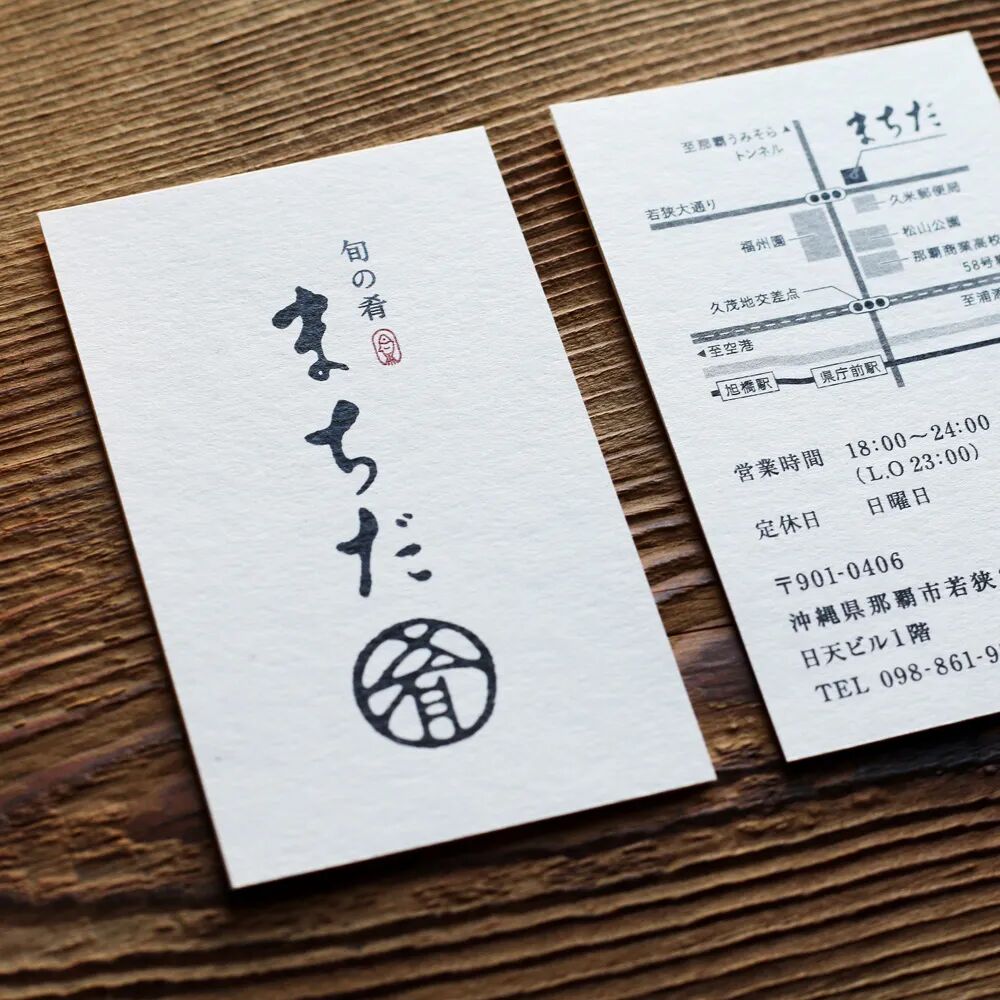 旬の肴
まちだ
肴
まちだ
至那覇うみそら▲
トンネル
若狭大通り
久米郵便局
福州園
松山公園
那覇商業高校
58号
久茂地交差点
至浦
◀至空港
旭橋駅
県庁前駅
営業時間 18:00〜24:00
(L.O 23:00)
定休日 日曜日
〒901-0406
沖縄県那覇市若狭
日天ビル1階
TEL 098-861-9